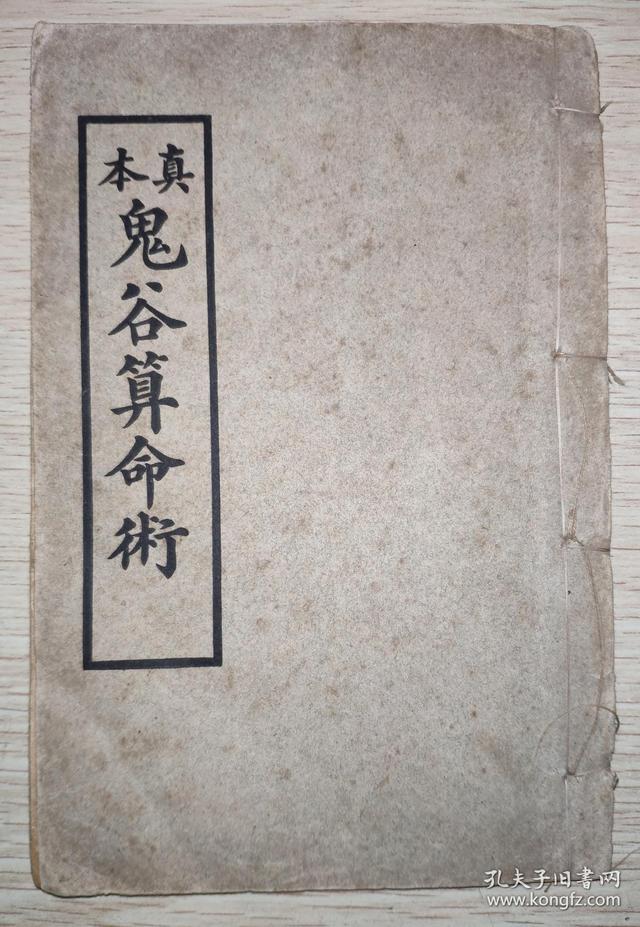 真本
鬼谷算命術
孔夫子旧書网
www.kongfz.com